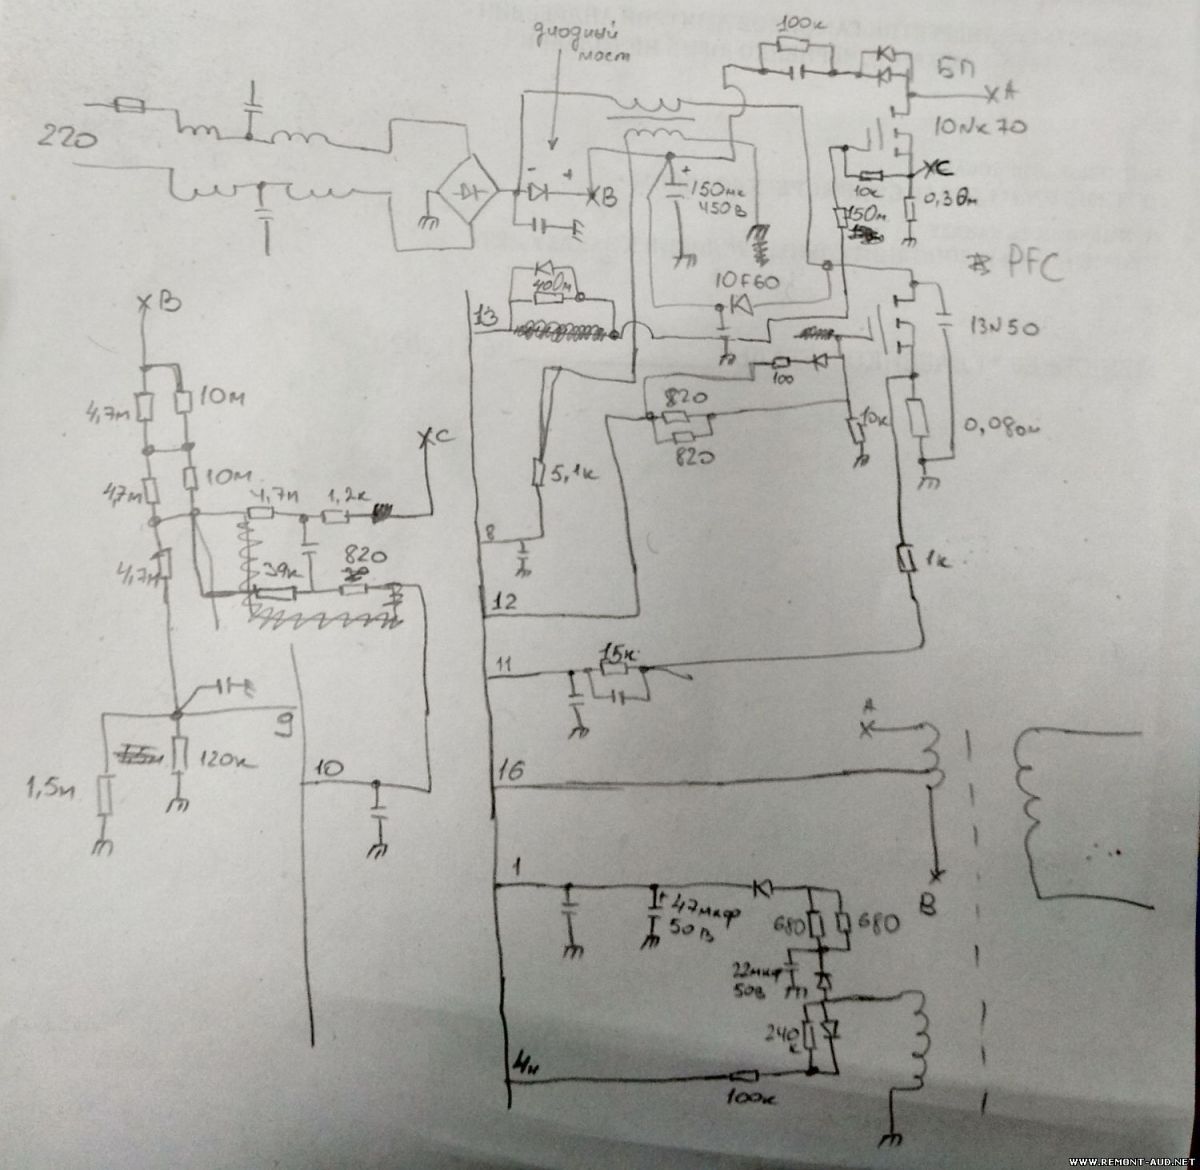 диодный
мост
100к
БП
A
220
10Nк70
C
10к
0,3 Ом
B
150мк
450в
150м
PFC
400м
10F60
13
13N50
B
100
10м
4,7м
820
10к
0,08ом
C
820
10м
5,1к
4,7м
4,7к
1,2к
8
1к
820
39к
4,7м
12
15к
11
A
9
120к
16
1,5м
10
1
47мкф
50в
B
680
680
22мкф
50в
240
к
4н
100к
WWW.REMONT-AUD.NET